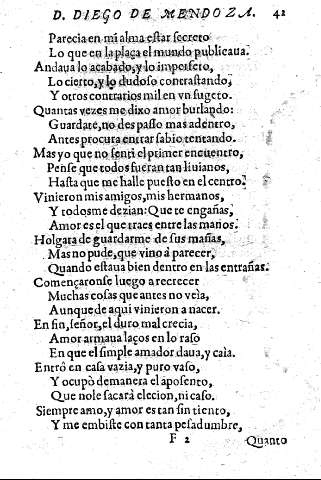 D. DIEGO DE MENDOZA. 42
Parecia en mi alma estar secreto
Lo que en la plaça el mundo publicaua.
Andaua lo acabado, y lo imperfeto,
Lo cierto, y lo dudoso contrastando,
Y otros contrarios mil en vn sugeto.
Quantas vezes me dixo amor burlando:
Guardate, no des passo mas adentro,
Antes procura entrar sabio tentando.
Mas yo que no senti el primer encuentro,
Pensè que todos fueran tan liuianos,
Hasta que me halle puesto en el centro.
Vinieron mis amigos, mis hermanos,
Y todos me dezian: Que te engañas,
Amor es el que traes entre las manos.
Holgara de guardarme de sus mañas,
Mas no pude, que vino à parecer,
Quando estaua bien dentro en las entrañas.
Començaronse luego a recrecer
Muchas cosas que antes no veìa,
Aunque de aqui vinieron a nacer.
En fin, señor, el duro mal crecia,
Amor armaua laços en lo raso
En que el simple amador daua, y caìa.
Entrò en casa vazia, y puro vaso,
Y ocupò de manera el aposento,
Que no le sacarà elecion, ni caso.
Siempre amo, y amor es tan sin tiento,
Y me embiste con tanta pesadumbre,
F 2 Quanto